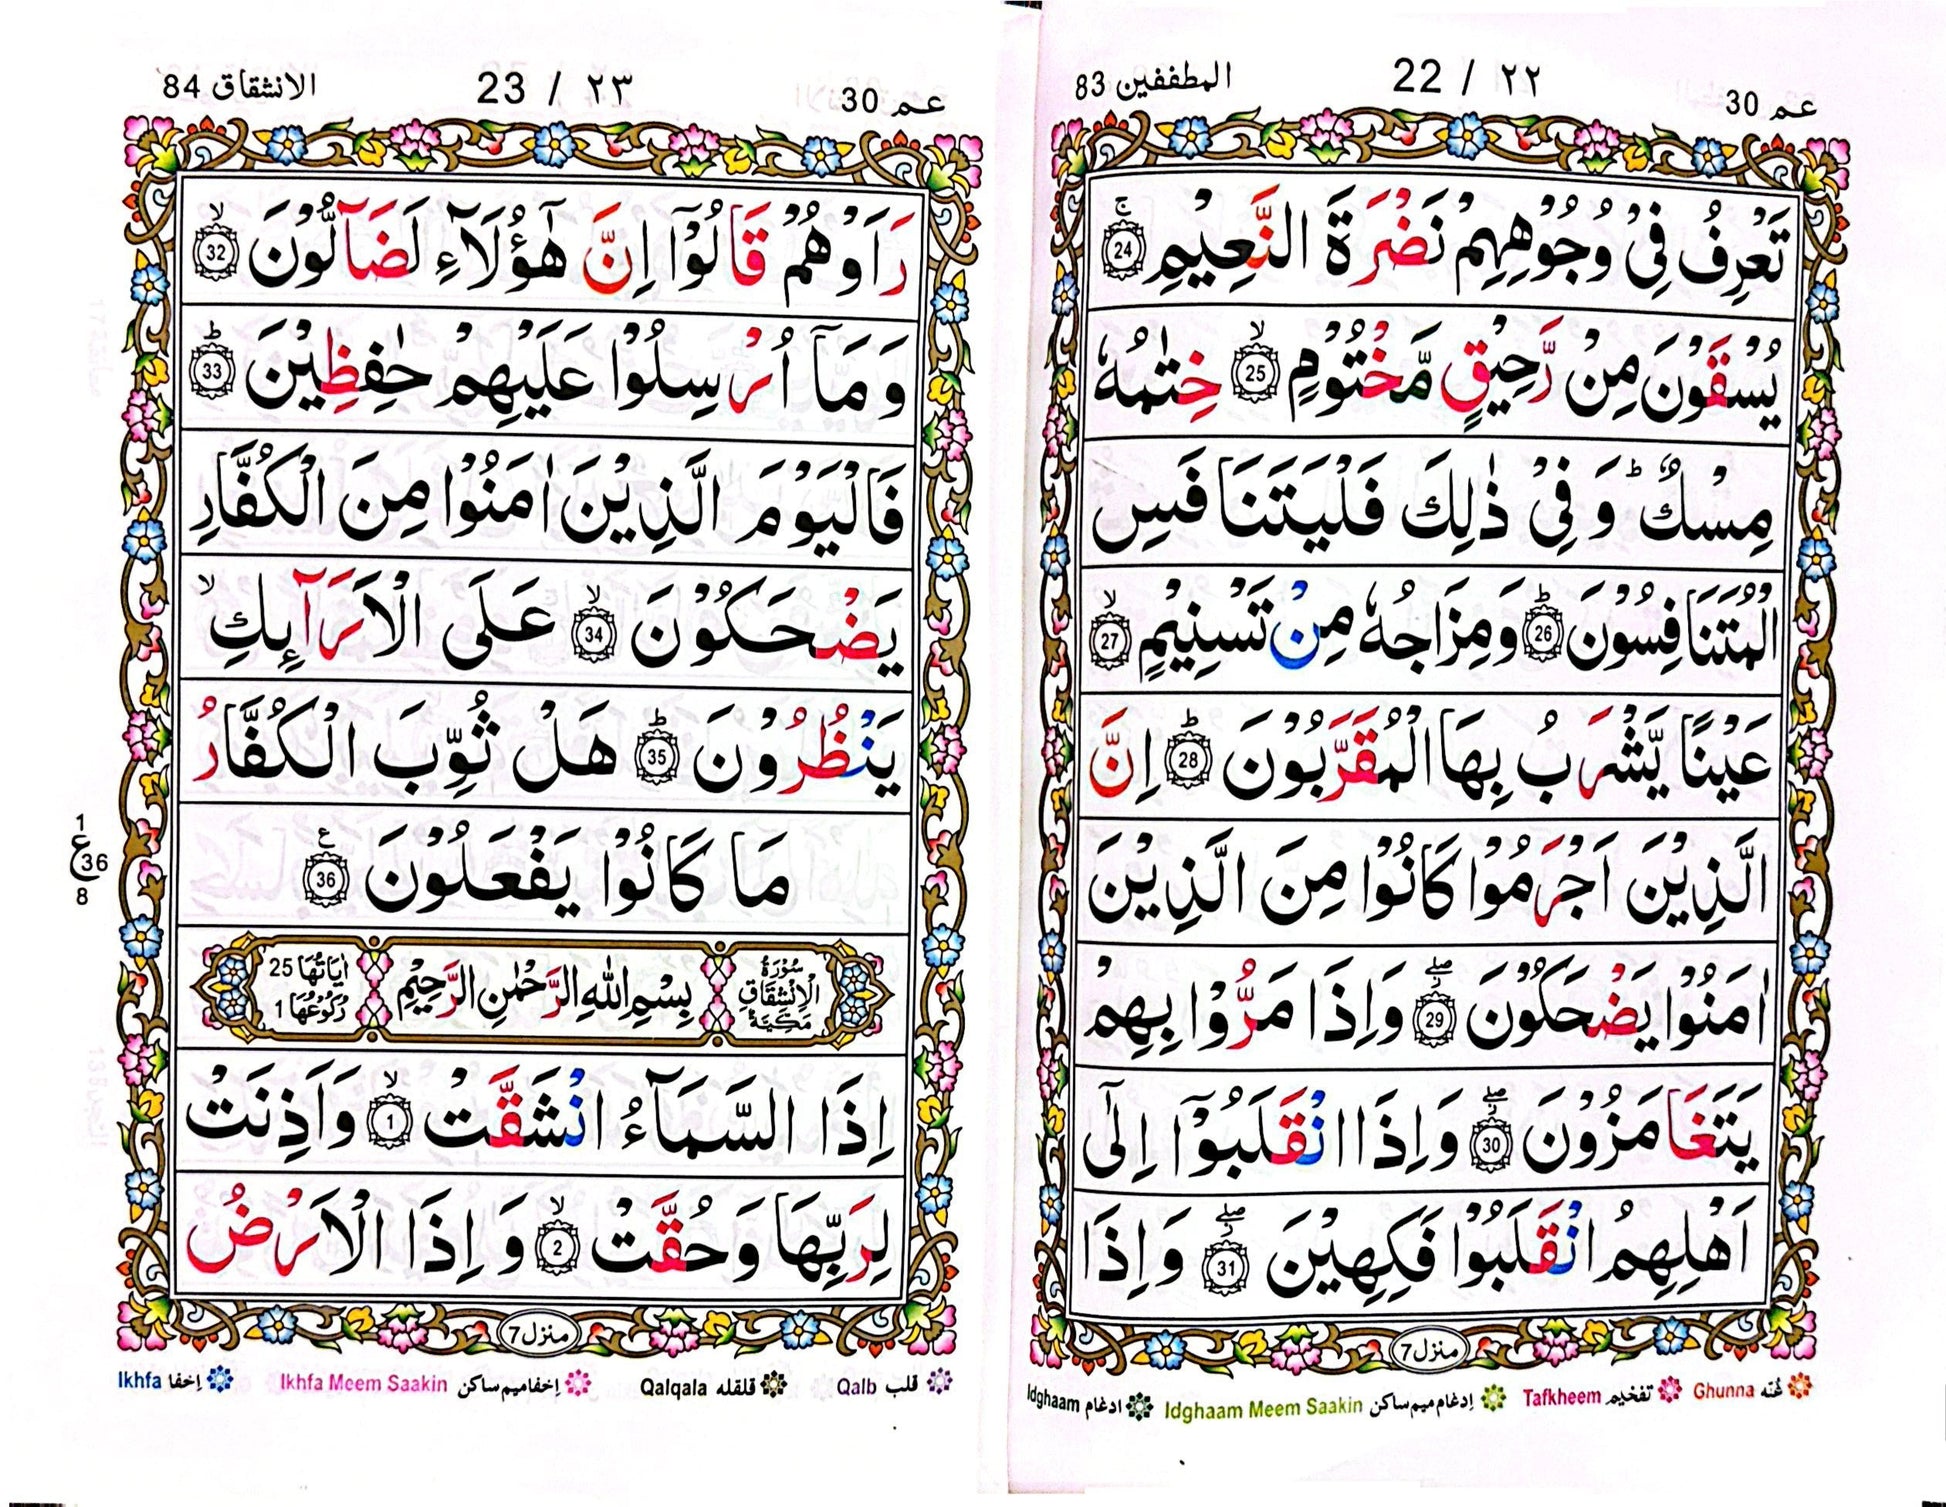 المطففين 83
22 / ٢٢
عم 30
تَعْرِفُ فِیْ وُجُوْهِهِمْ نَضْرَةَ النَّعِیْمِ ۚ 24
یُسْقَوْنَ مِنْ رَّحِیْقٍ مَّخْتُوْمٍ ۙ 25 خِتٰمُهٗ
مِسْكٌ ؕ وَ فِیْ ذٰلِكَ فَلْیَتَنَافَسِ
الْمُتَنَافِسُوْنَ ؕ 26 وَمِزَاجُهٗ مِنْ تَسْنِیْمٍ ۙ 27
عَیْنًا یَّشْرَبُ بِهَا الْمُقَرَّبُوْنَ ؕ 28 اِنَّ
الَّذِیْنَ اَجْرَمُوْا كَانُوْا مِنَ الَّذِیْنَ
اٰمَنُوْا یَضْحَكُوْنَ ۖ 29 وَاِذَا مَرُّوْا بِهِمْ
یَتَغَامَزُوْنَ ۖ 30 وَاِذَا انْقَلَبُوْۤا اِلٰۤی
اَهْلِهِمُ انْقَلَبُوْا فَكِهِیْنَ ۖ 31 وَاِذَا
منزل 7
Ghunna غُنّه
Tafkheem تفخیم
Idghaam Meem Saakin إدغام میم ساکن
Idghaam ادغام
الانشقاق 84
23 / ٢٣
عم 30
رَاَوْهُمْ قَالُوْۤا اِنَّ هٰۤؤُلَآءِ لَضَآلُّوْنَ ۙ 32
وَ مَاۤ اُرْسِلُوْا عَلَیْهِمْ حٰفِظِیْنَ ؕ 33
فَالْیَوْمَ الَّذِیْنَ اٰمَنُوْا مِنَ الْكُفَّارِ
یَضْحَكُوْنَ ۙ 34 عَلَی الْاَرَآىِٕكِ ۙ
یَنْظُرُوْنَ ؕ 35 هَلْ ثُوِّبَ الْكُفَّارُ
مَا كَانُوْا یَفْعَلُوْنَ 36 ع
1
ع 36
8
سُوْرَةُ الْاِنْشِقَاقِ مَكِّیَّةٌ بِسْمِ اللهِ الرَّحْمٰنِ الرَّحِیْمِ اٰیَاتُهَا 25 رُكُوْعُهَا 1
اِذَا السَّمَآءُ انْشَقَّتْ ۙ 1 وَاَذِنَتْ
لِرَبِّهَا وَحُقَّتْ ۙ 2 وَ اِذَا الْاَرْضُ
منزل 7
Qalb قلب
Qalqala قلقله
Ikhfa Meem Saakin إخفا میم ساکن
Ikhfa إخفا